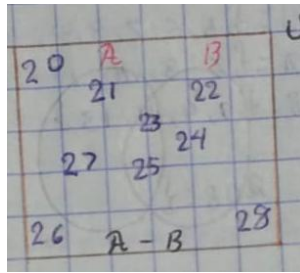 20 A B
21 22
23
24
27 25
26 A - B 28